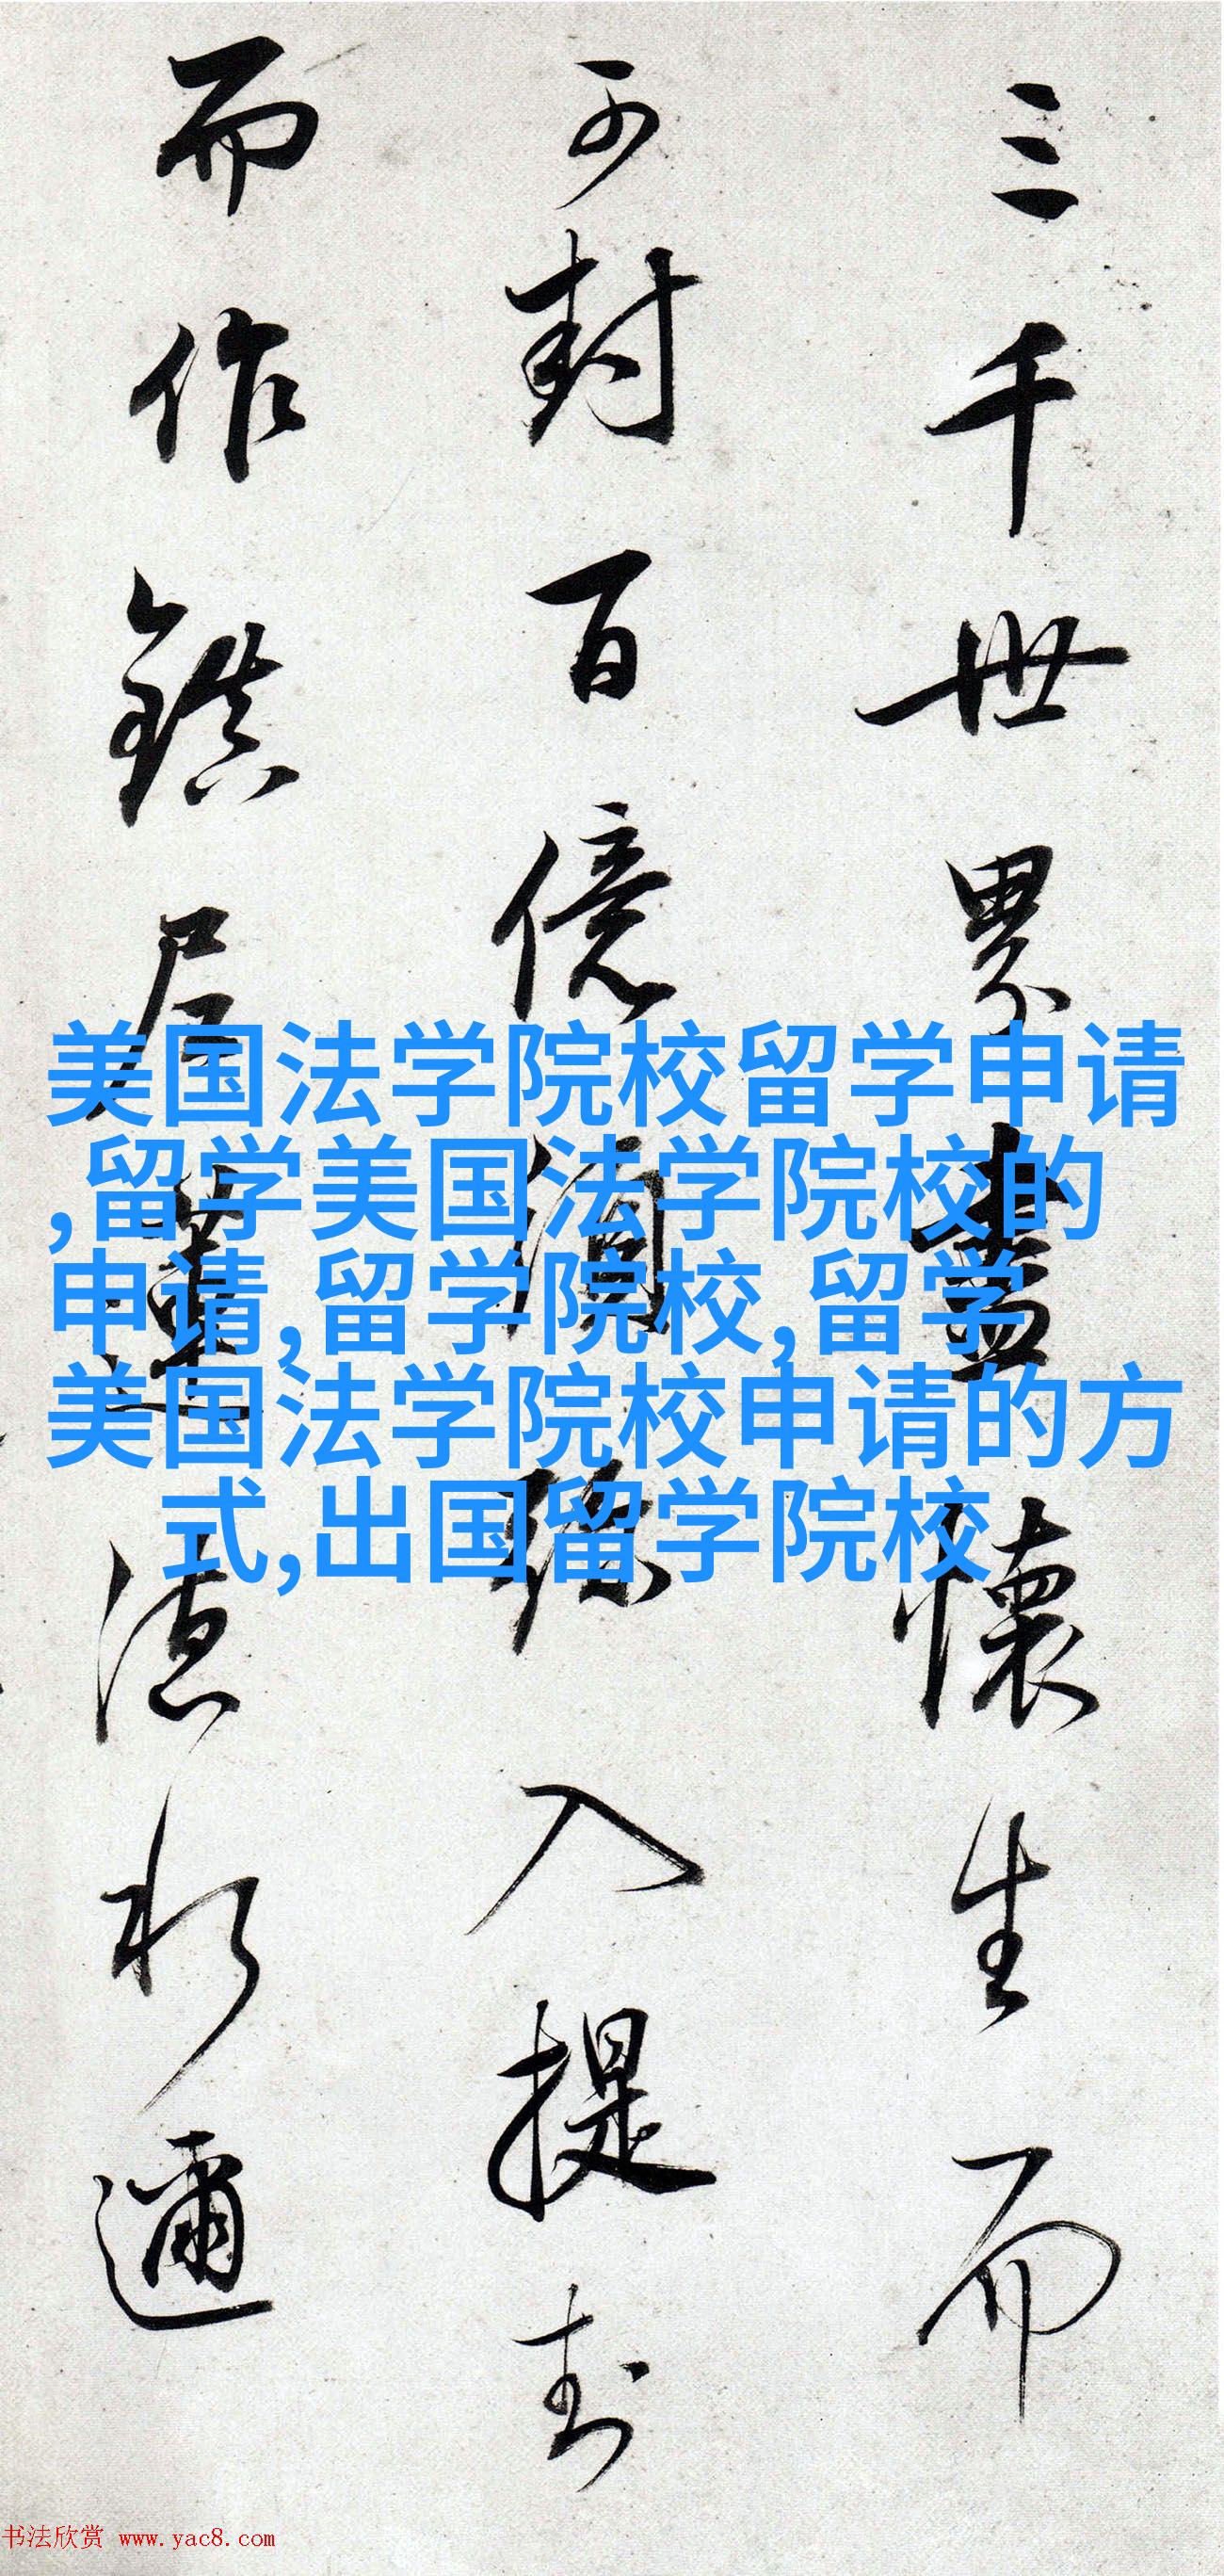 三千世界盡懷生而
可封百億須弥入提封
而作鎮居尊
邇
美国法学院校留学申请
,留学美国法学院校的
申请,留学院校,留学
美国法学院校申请的方
式,出国留学院校
书法欣赏 www.yac8.com